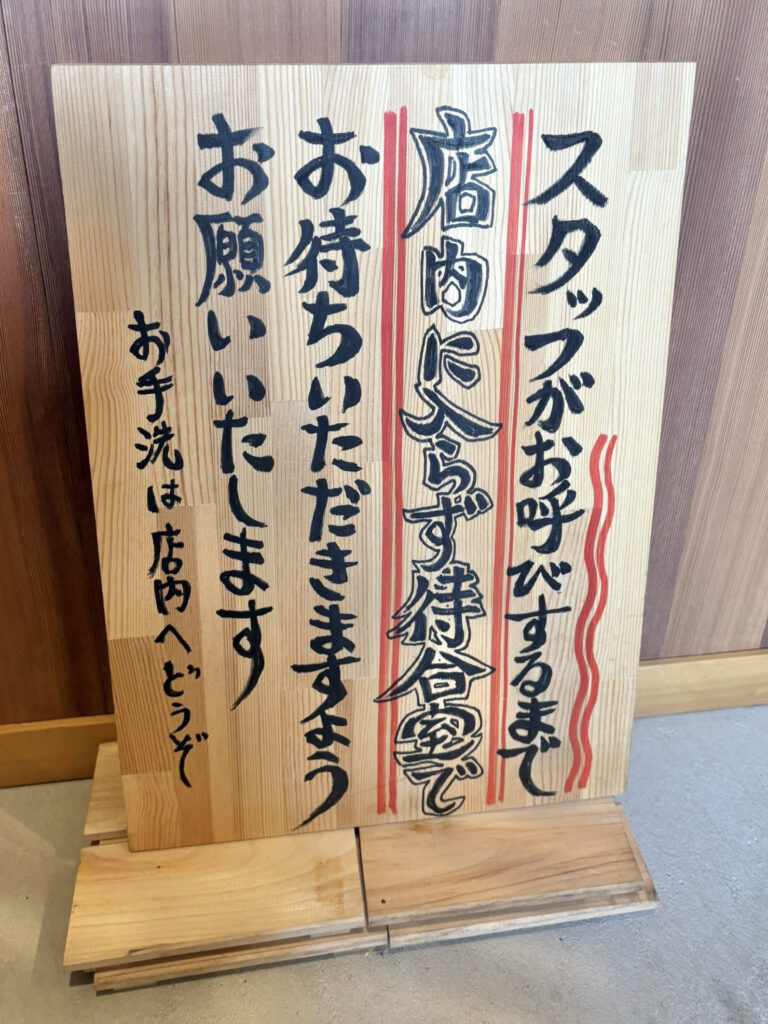 スタッフがお呼びするまで
店内に入らず待合室で
お待ちいただきますよう
お願いいたします
お手洗は店内へどうぞ